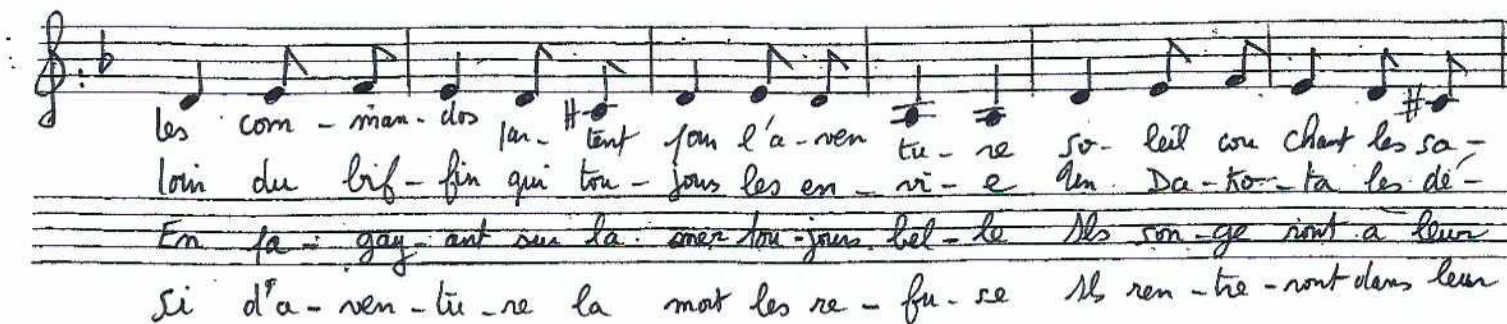 les com - man - dos par - tent pour l'a - ven tu - re so - leil cou chant les sa -
loin du bif - fin qui tou - jours les en - vi - e Un Da - ko - ta les dé -
En pa - gay - ant sur la mer tou - jours bel - le Ils son - ge ront à leur
Si d'a - ven - tu - re la mort les re - fu - se Ils ren - tre - ront dans leur